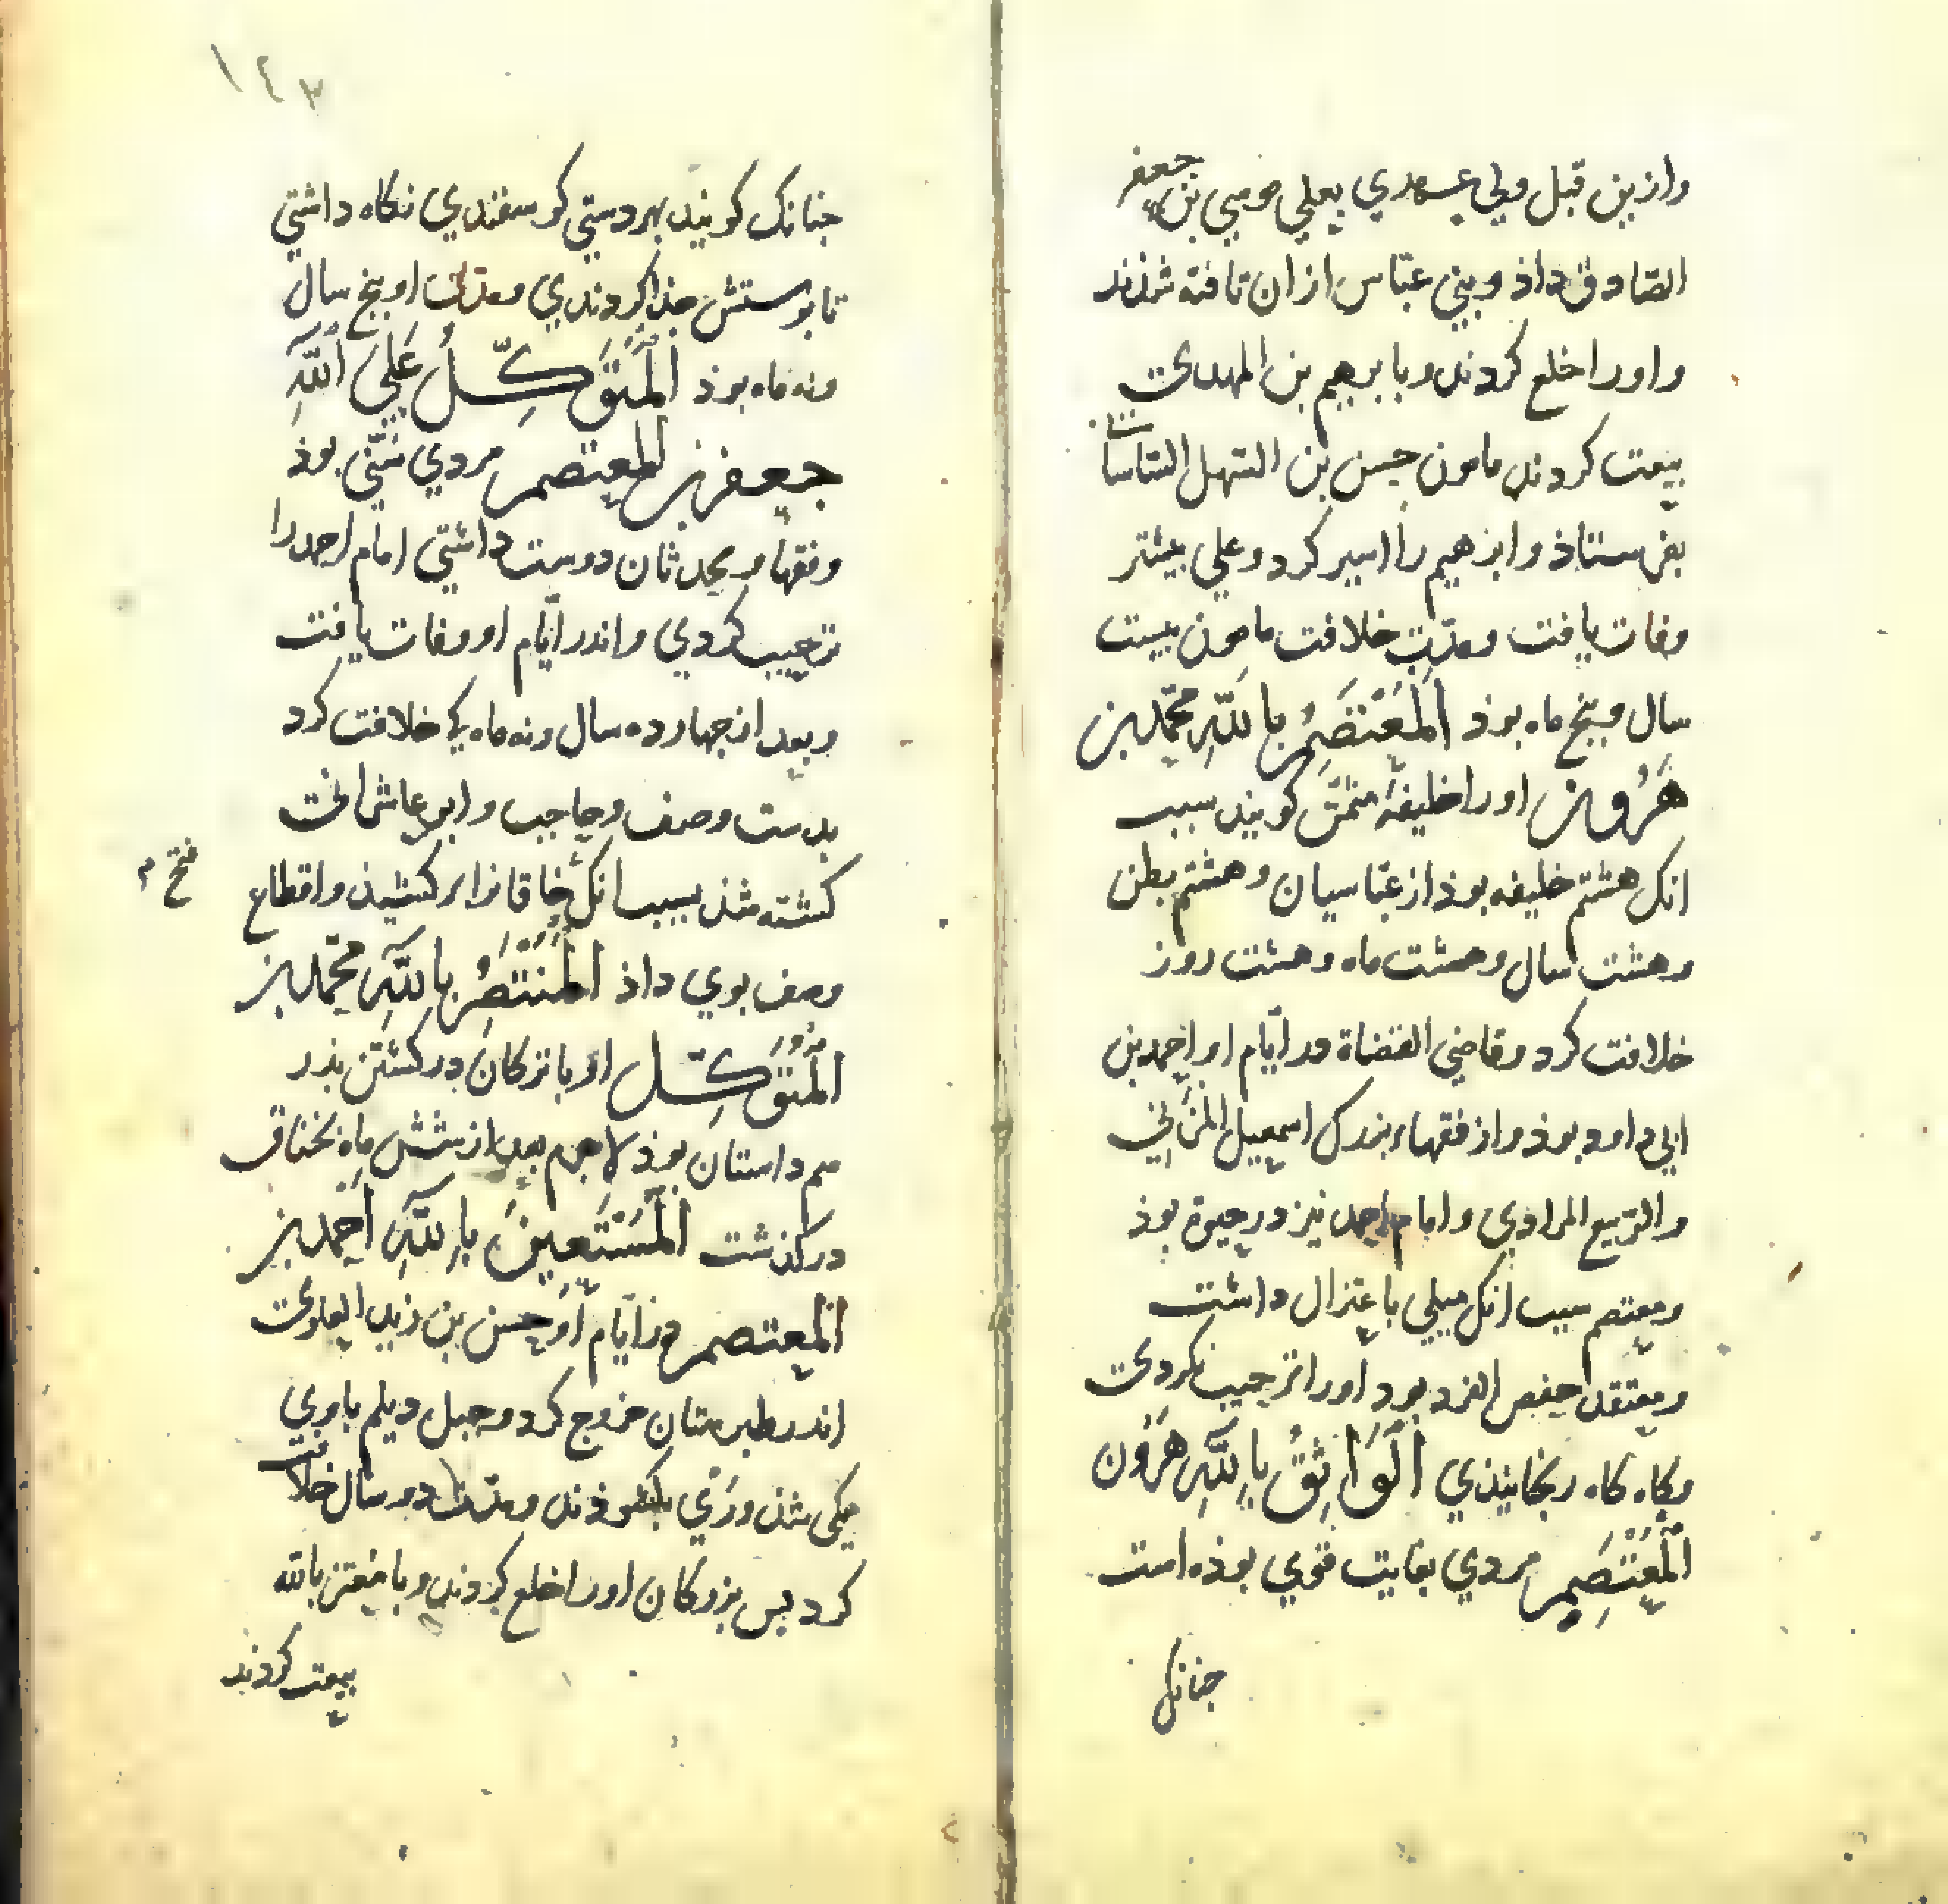 وازین قبل ولی عهدی بعلی موسی بن جعفر
الصّادق داذ و بنی عبّاس ازان تافته شذند
و اورا خلع کردند و بابرهیم بن المهدی
بیعت کردند مامون حسن بن السّهل
بفرستاذ و ابرهیم را اسیر کرد و علی بیشتر
وفات یافت و مدّت خلافت مامون بیست
سال و بنج ماه بوذ اَلْمُعْتَصِمُ بِاللّهِ محمّد بن
هَرُون اورا خلیفهٔ مثمّن کویند سبب
انک هشتم خلیفه بوذ از عبّاسیان و هشتم بطن
و هشت سال و هشت ماه و هشت روز
خلافت کرد و قاضی القضاة در ایّام او احمد بن
ابی داود بوذ و از فقهاء بزرک اسمعیل المزنی
و الرّبیع المرادی و امام احمد نیز در حیوة بوذ
و معتصم سبب انک میلی باعتزال داشت
و معتقد حفص الفرد بود اورا ترحیب نکردی
و کاه کاه رنجانیذی اَلْوَاثِقُ بِاللّهِ هَرُون
اَلْمُعْتَصِم مردی بغایت قوی بوذه است
جنانک
١٤٣
جنانک کویند بهر دستی کوسفندی نکاه داشتی
تا بوستش جذا کردندی و مدّت او بنج سال
و نه ماه بوذ اَلْمُتَوَكِّلُ عَلَى اللّهِ
جعفر بن المعتصم مردی سنّی بوذ
و فقها و محدثان دوست داشتی امام احمد را
ترحیب کردی و اندر ایّام او وفات یافت
و بعد از جهارده سال و نه ماه کی خلافت کرد
بدست وصف و حاجب و ابو
کشته شذ بسبب انک خاقانرا بر کشیذ و اقطاع
فتح م
وصف بوی داذ اَلْمُنْتَصِرُ بِاللّهِ محمّد بن
اَلْمُتَوَكِّل او با ترکان در کشتن بذر
هم داستان بوذ لاجرم بعد از شش ماه بخناق
درکذشت اَلْمُسْتَعِينُ بِاللّهِ اَحمد بن
المعتصم در ایّام او حسن بن زید العلوی
اندر طبرستان خروج کرد و جبل دیلم با وی
یکی شذ و رَی بکشوذند و مدّت دو سال خلافت
کرد بس بزرکان اورا خلع کردند و با معتز بالله
بیعت کردند